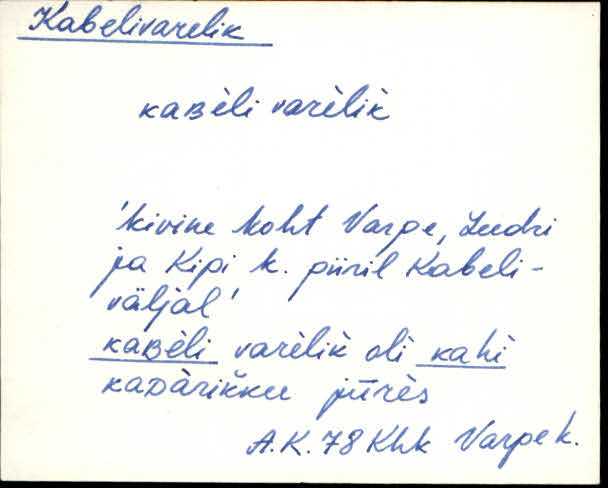 Kabelivarelik
kaʙèli varèlik̀
'kivine koht Varpe, Leedri
ja Kipi k. piiril Kabeli-
väljal'
kaʙèli varèlik̀ oli kahè
kaᴅàrik̀ku jūrès
A.K. 78 Khk Varpe k.